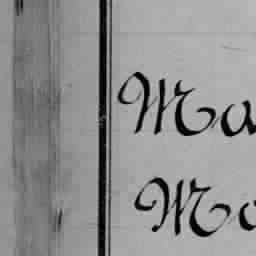 Ma
Mo